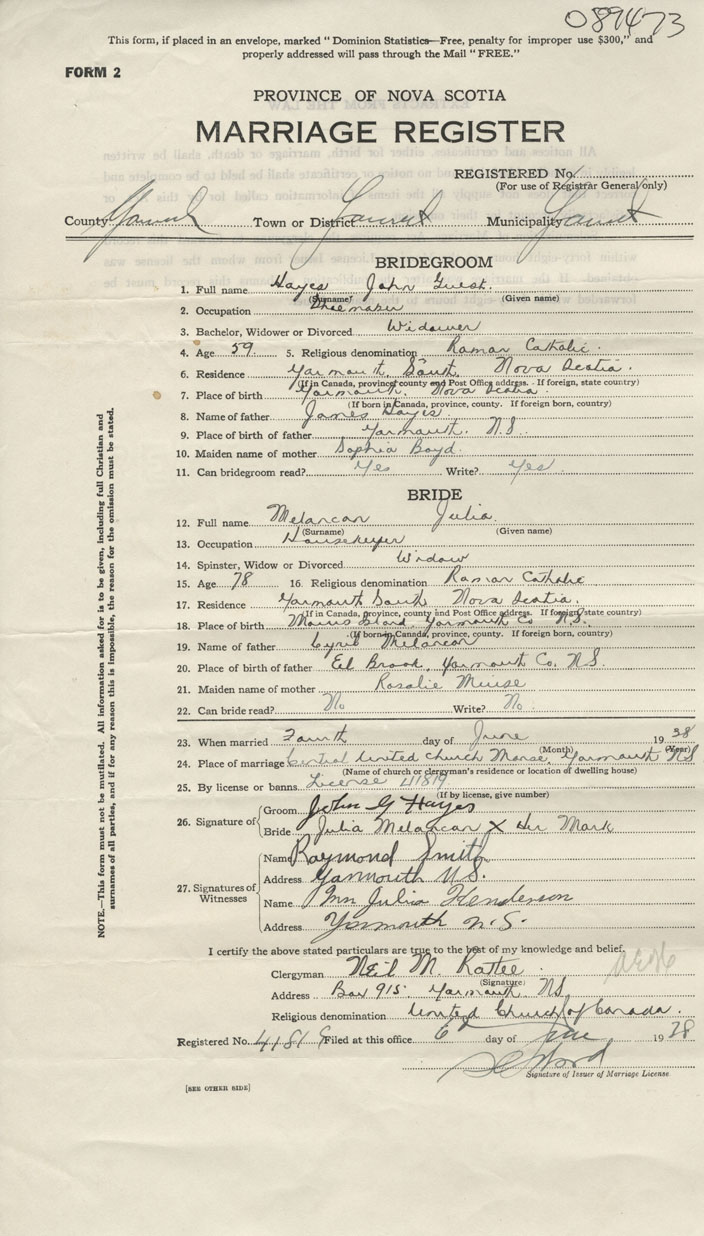 089473
This form, if placed in an envelope, marked "Dominion Statistics—Free, penalty for improper use $300," and
properly addressed will pass through the Mail "FREE."
FORM 2
PROVINCE OF NOVA SCOTIA
MARRIAGE REGISTER
REGISTERED No.
(For use of Registrar General only)
County Yarmouth Town or District Yarmouth Municipality Yarmouth
BRIDEGROOM
1. Full name Hayes John Guest.
(Surname) (Given name)
2. Occupation Shoemaker
3. Bachelor, Widower or Divorced Widower
4. Age 59. 5. Religious denomination Roman Catholic.
6. Residence Yarmouth, South, Nova Scotia.
(If in Canada, province, county and Post Office address. - If foreign, state country)
7. Place of birth Yarmouth, Nova Scotia
(If born in Canada, province, county. If foreign born, country)
8. Name of father James Hayes.
9. Place of birth of father Yarmouth. N.S.
10. Maiden name of mother Sophia Boyd.
11. Can bridegroom read? Yes Write? Yes.
BRIDE
12. Full name Melancon Julia.
(Surname) (Given name)
13. Occupation Housekeeper
14. Spinster, Widow or Divorced Widow
15. Age 78 16. Religious denomination Roman Catholic
17. Residence Yarmouth South Nova Scotia.
(If in Canada, province, county and Post Office address. If foreign, state country)
18. Place of birth Morris Island, Yarmouth Co. N.S.
(If born in Canada, province, county. If foreign born, country)
19. Name of father Cyril Melancon
20. Place of birth of father Eel Brook, Yarmouth Co. N.S.
21. Maiden name of mother Rosalie Muise
22. Can bride read? No Write? No.
23. When married Fourth day of June 1938
(Month) (Year)
24. Place of marriage Central United Church Manse, Yarmouth NS
(Name of church or clergyman's residence or location of dwelling house)
25. By license or banns License 41819
(If by license, give number)
26. Signature of
Groom John G Hayes
Bride Julia Melancon X Her Mark
27. Signatures of Witnesses
Name Raymond Smith
Address Yarmouth N.S.
Name Mrs Julia Henderson
Address Yarmouth N.S.
I certify the above stated particulars are true to the best of my knowledge and belief.
Clergyman Neil M. Rattee
(Signature)
Address Box 915 Yarmouth NS
Religious denomination United Church of Canada.
Registered No. 41819 Filed at this office 6 day of June 1938
Signature of Issuer of Marriage License
[SEE OTHER SIDE]
NOTE.—This form must not be mutilated. All information asked for is to be given, including full Christian and
surnames of all parties, and if for any reason this is impossible, the reason for the omission must be stated.